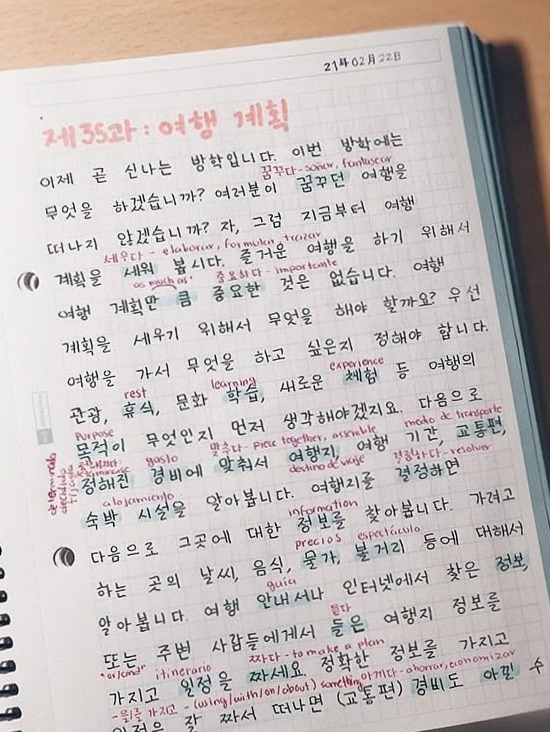 21年02月22日
제35과: 여행 계획
이제 곧 신나는 방학입니다. 이번 방학에는
꿈꾸다 - soñar, fantasear
무엇을 하겠습니까? 여러분이 꿈꾸던 여행을
떠나지 않겠습니까? 자, 그럼 지금부터 여행
세우다 - elaborar, formular, trazar
계획을 세워 봅시다. 즐거운 여행을 하기 위해서
as much as. 중요하다 - importante
여행 계획만 큼 중요한 것은 없습니다. 여행
계획을 세우기 위해서 무엇을 해야 할까요? 우선
여행을 가서 무엇을 하고 싶은지 정해야 합니다.
rest learning experience
관광, 휴식, 문화 학습, 새로운 체험 등 여행의
purpose
목적이 무엇인지 먼저 생각해야겠지요. 다음으로
gasto 맞추다 - piece together, assemble modo de transporte
정해진 경비에 맞춰서 여행지, 여행 기간, 교통편,
alojamiento destino de viaje 결정하다 - resolver
숙박 시설을 알아봅니다. 여행지를 결정하면
information
다음으로 그곳에 대한 정보를 찾아봅니다. 가려고
precios espectáculo
하는 곳의 날씨, 음식, 물가, 볼거리 등에 대해서
guía
알아봅니다. 여행 안내서나 인터넷에서 찾은 정보,
듣다
또는, 주변 사람들에게서 들은 여행지 정보를
"or/and" itinerario 짜다 - to make a plan
가지고 일정을 짜세요. 정확한 정보를 가지고
-을/를 가지고 - (using/with/on/about) something 아끼다 - ahorrar, economizar
일정을 잘 짜서 떠나면 (교통편) 경비도 아낄 수